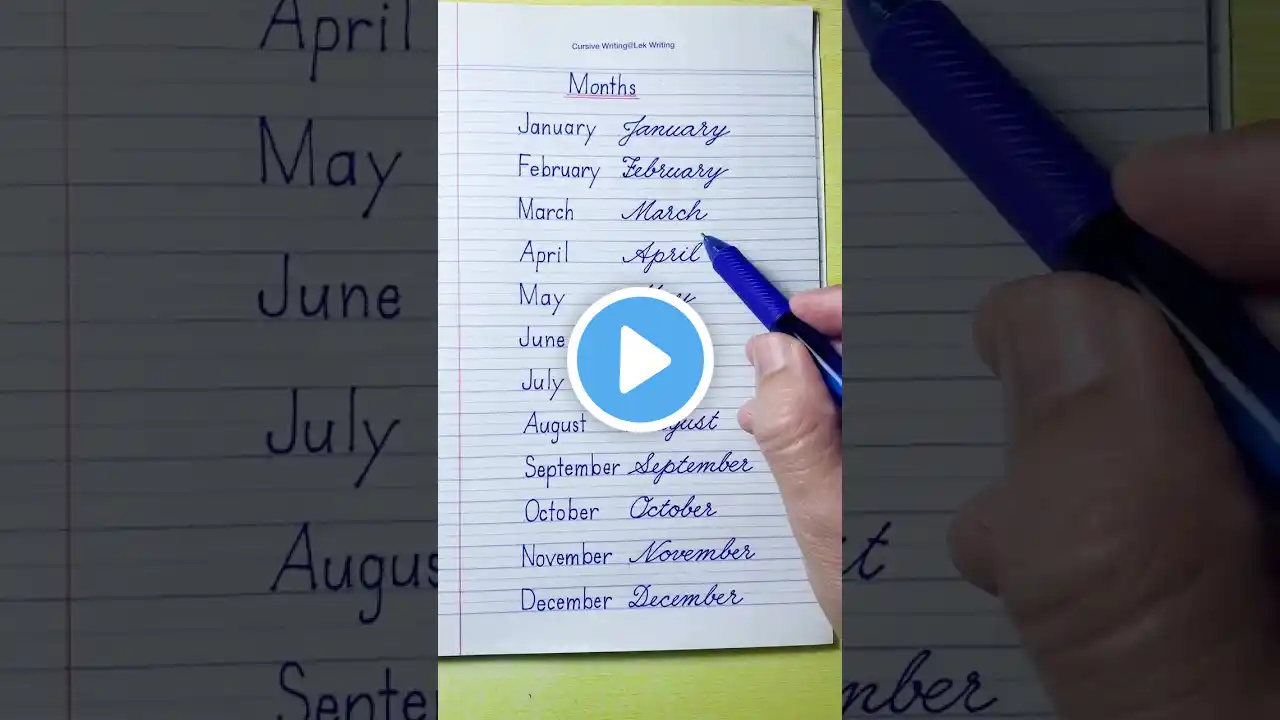 Cursive Writing@Lek Writing
Months
January January
February February
March March
April April
May May
June
July
August
September September
October October
November November
December December
April
May
June
July